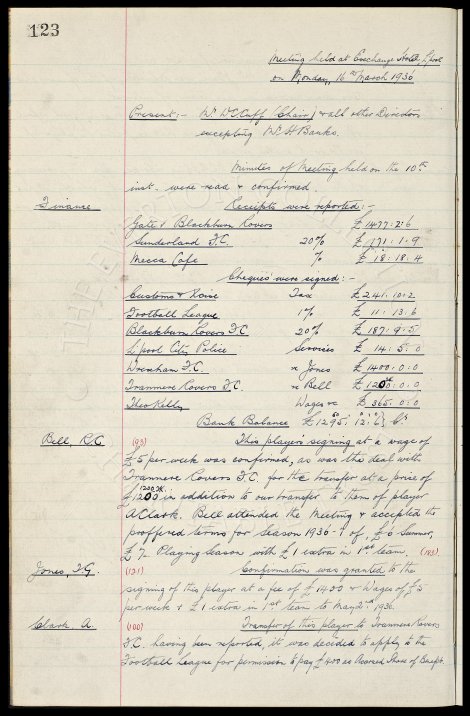 123
Meeting held at Exchange Hotel, L'pool
on Monday, 16th March 1936
Present:- Mr. W.C. Cuff (Chair) & all other Directors
excepting Mr. H. Banks.
Minutes of Meeting held on the 10th
inst. were read & confirmed.
Finance Receipts were reported:-
Gate v Blackburn Rovers £1477:2:6
Sunderland F.C. 20% £171:1:9
Mecca Cafe % £18:18:4
Cheques were signed:-
Customs & Excise Tax £241:10:2
Football League 1% £11:13:6
Blackburn Rovers F.C. 20% £187:9:5
L'pool City Police Services £14:5:0
Wrexham F.C. x Jones £1400:0:0
Tranmere Rovers F.C. x Bell £1200:0:0
Theo Kelly Wages &c £365:0:0
Bank Balance £1295:12:6 Cr.
Bell, R.C. (93) This player's signing at a wage of
£5 per week was confirmed, as was the deal with
Tranmere Rovers F.C. for the transfer at a price of
£1200 in addition to our transfer to them of player
A Clark. Bell attended the Meeting & accepted the
proffered terms for Season 1936-7 of, £6 Summer,
£7 Playing Season with £1 extra in 1st team. (193)
Jones, T.G. (121) Confirmation was granted to the
signing of this player at a fee of £1400 & Wages of £5
per week & £1 extra in 1st team to May 2nd 1936.
Clark, A. (100) Transfer of this player to Tranmere Rovers
F.C. having been reported, it was decided to apply to the
Football League for permission to pay £400 as Accrued Share of Benefit.